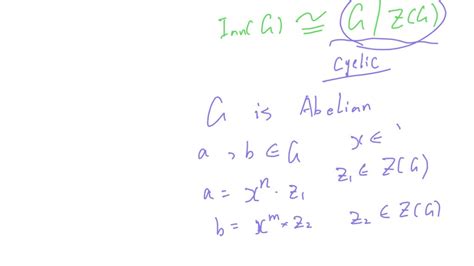 Inn(G) ≅ G/Z(G)
Cyclic
G is Abelian
a, b ∈ G x ∈
a = xⁿ · z₁ z₁ ∈ Z(G)
b = xᵐ · z₂ z₂ ∈ Z(G)